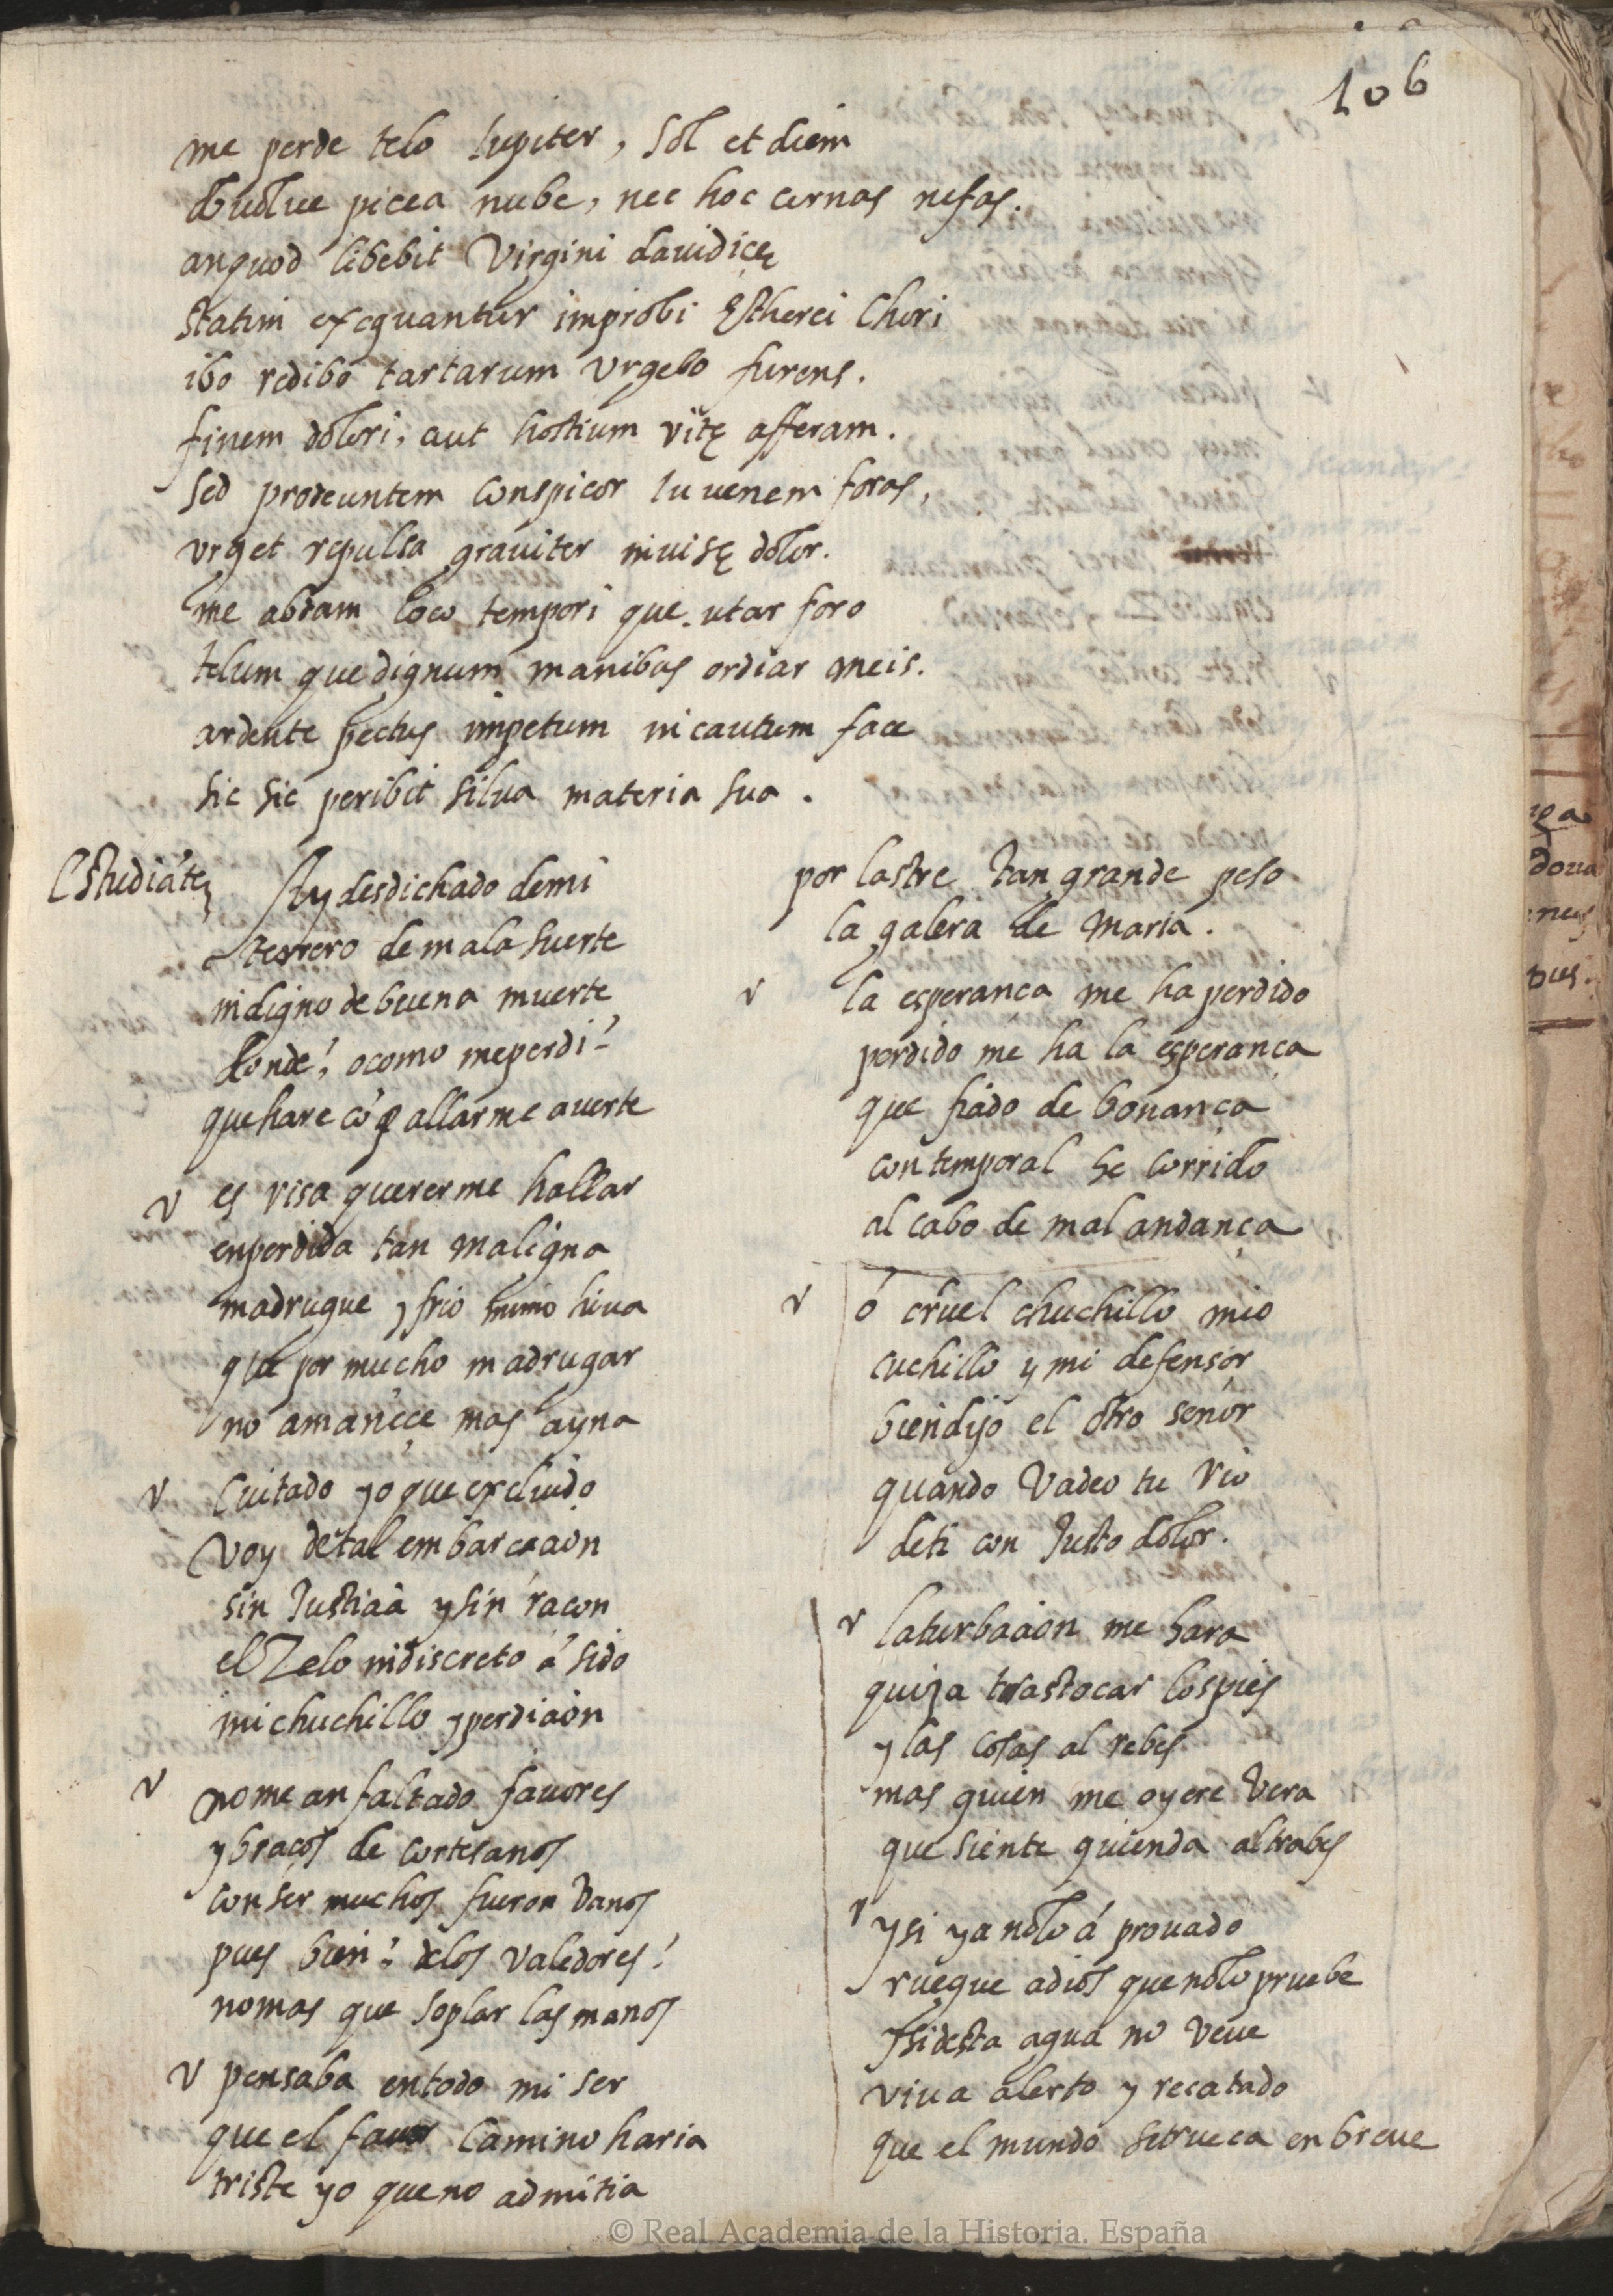 106
me perde telo Iupiter, Sol et diem
obuolue picea nube, nec hoc cernas nefas.
an quod libebit Virgini dauidicę
statim exequantur improbi Etherei Chori
ibo redibo tartarum Vrgebo furens.
finem dolori, aut hostium vitę afferam.
Sed prodeuntem Conspicor Iuuenem foras,
vrget repulsa grauiter inuisę dolor.
me abdam loco tempori que utar foro
telum que dignum manibus ordiar meis.
ardente pectus impetum incautum face
sic sic peribit silua materia sua.
Estudiãte
Ay desdichado demi
terrero de mala suerte
indigno de buena muerte
donde! ocomo meperdi!
que hare cõ q allarme auerte
v es risa quererme hallar
enperdida tan maligna
madrugue y frio mimo hiua
que por mucho madrugar
no amaneçe mas ayna
v Cuitado yo que excluido
voy de tal embarcacion
sin Justicia y sin raçon
el Zelo indiscreto á sido
mi chuchillo y perdicion
v no me an faltado fauores
y braços de cortesanos
con ser muchos fueron Vanos
pues bien! delos Valedores!
nomas que soplar las manos
v pensaba entodo mi ser
que el fauor Camino haria
triste yo que no admitia
por lastre tan grande peso
la galera de Maria.
v la esperança me ha perdido
perdido me ha la esperança
que fiado de bonança
con temporal he Corrido
al cabo de mal andança
v ó cruel chuchillo mio
cuchillo y mi defensor
bien dijo el otro señor
quando Vadeo tu Rio
deti con Justo dolor.
v la turbacion me hara
quiza trastocar los pies
y las cosas al rebes
mas quien me oyere Vera
que siente quienda al trabes
v y si ya nolo á prouado
ruegue adios que nolo pruebe
y si desta agua no veue
viua alerto y recatado
que el mundo setrueca en breue
© Real Academia de la Historia. España